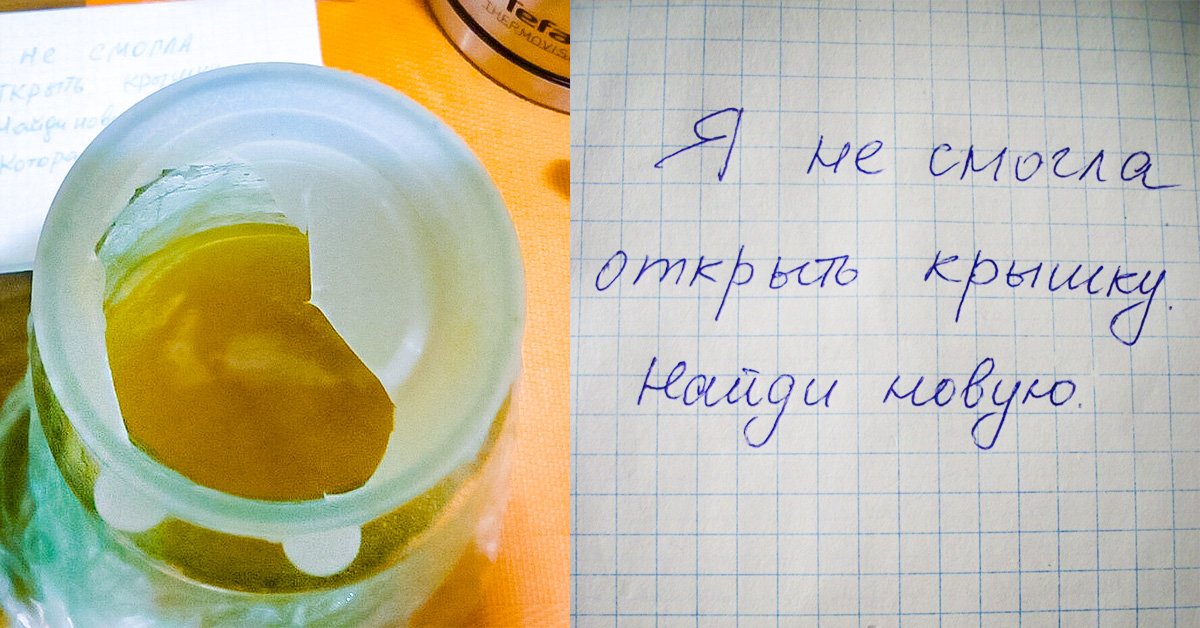 не смогла
крыть крышку
Найди нов
Котора
Tefa
THERMOVIS
Я не смогла
открыть крышку.
Найди новую.